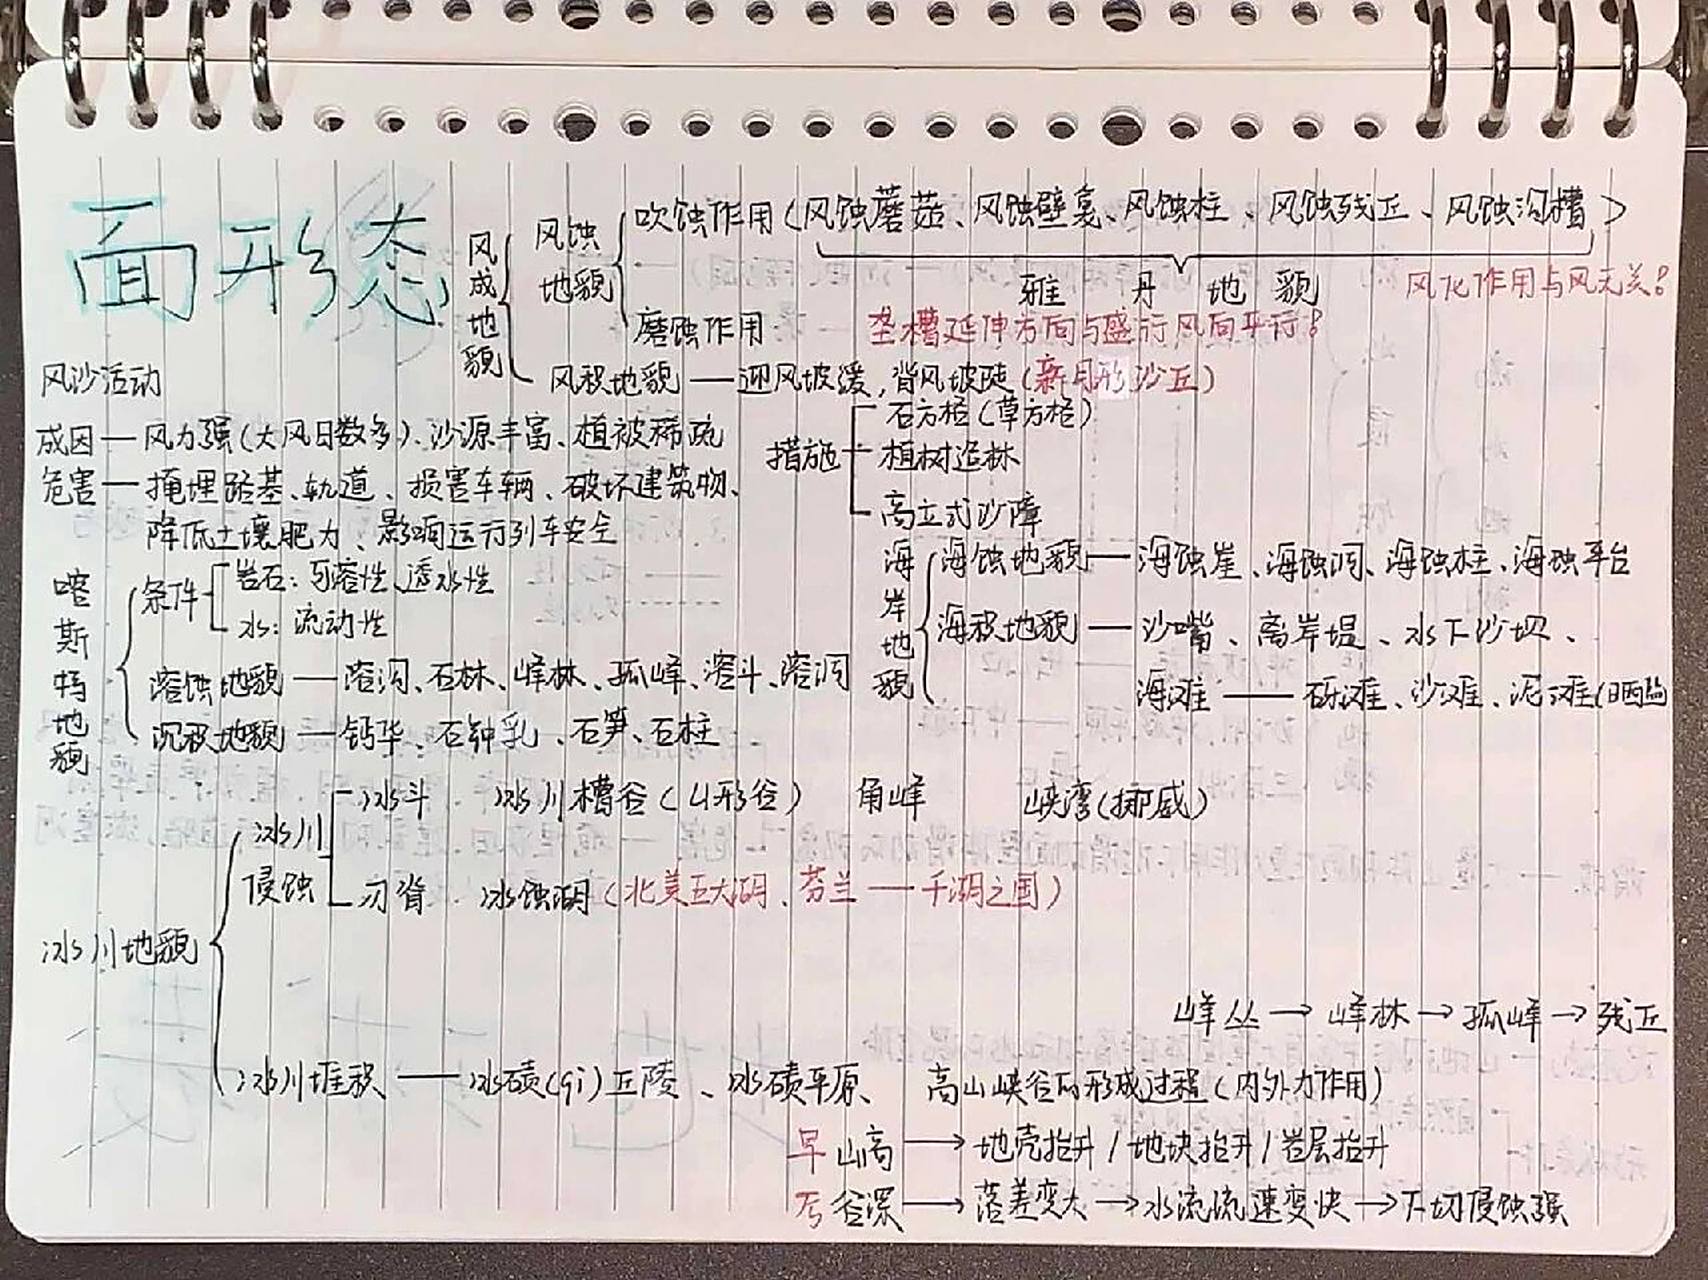 面形态
风成地貌
风蚀地貌
吹蚀作用(风蚀蘑菇、风蚀壁龛、风蚀柱、风蚀残丘、风蚀沟槽)
雅丹地貌
风化作用与风无关!
磨蚀作用
垄槽延伸方向与盛行风向平行!
风积地貌——迎风坡缓,背风坡陡(新月形沙丘)
风沙活动
成因—风力强(大风日数多)、沙源丰富、植被稀疏
危害—掩埋路基、轨道、损害车辆、破坏建筑物、
降低土壤肥力、影响运行列车安全
措施
石方格(草方格)
植树造林
高立式沙障
喀斯特地貌
条件
岩石:可溶性、透水性
水:流动性
溶蚀地貌——溶沟、石林、峰林、孤峰、溶斗、溶洞
沉积地貌——钙华、石钟乳、石笋、石柱
海岸地貌
海蚀地貌——海蚀崖、海蚀洞、海蚀柱、海蚀平台
海积地貌——沙嘴、离岸堤、水下沙坝、
海滩——砾滩、沙滩、泥滩(晒盐
冰川地貌
冰川侵蚀
冰斗 冰川槽谷(U形谷) 角峰 峡湾(挪威)
刃脊 冰蚀湖(北美五大湖、芬兰——千湖之国)
冰川堆积——冰碛(qi)丘陵、冰碛平原、
峰丛→峰林→孤峰→残丘
高山峡谷的形成过程(内外力作用)
早 山高→地壳抬升/地块抬升/岩层抬升
谷深→落差变大→水流流速变快→下切侵蚀强